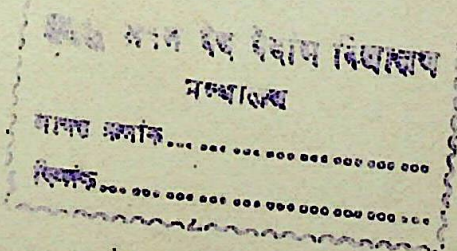 भवन वेद वेदाङ्ग विद्यालय
ग्रन्थालय
आगत क्रमांक...............................
दिनांक...............................